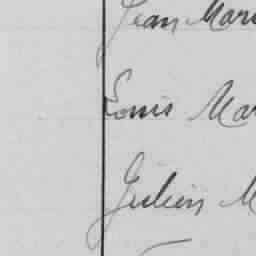 Jean Mari
Louis Mar
Julien M